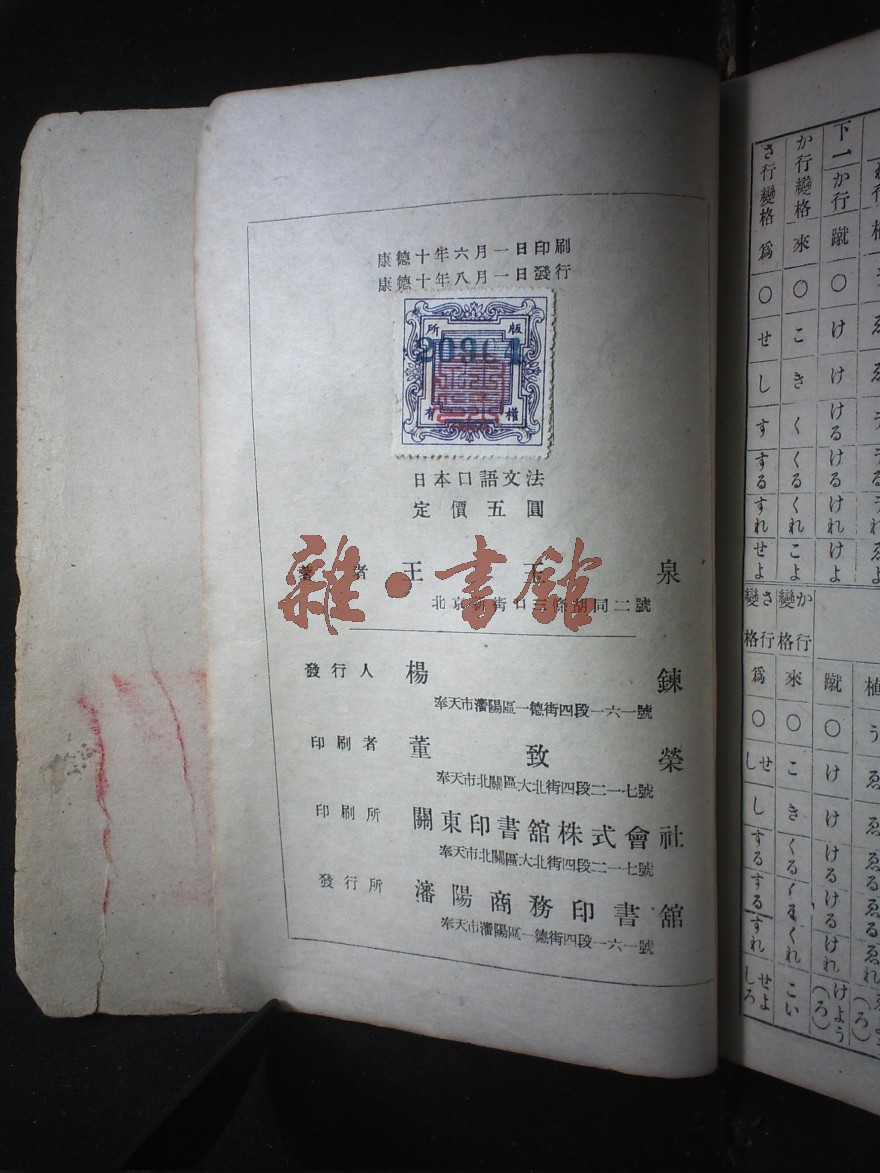 康德十年六月一日印刷
康德十年八月一日發行
版權所有
日本口語文法
定價五圓
著者 王玉泉
北京新街口三條胡同二號
雜·書館
發行人 楊鍊
奉天市瀋陽區一德街四段一六一號
印刷者 董致榮
奉天市北關區大北街四段二一七號
印刷所 關東印書館株式會社
奉天市北關區大北街四段二一七號
發行所 瀋陽商務印書館
奉天市瀋陽區一德街四段一六一號
下一か行 蹴 〇 け け ける ける けれ けよ
か行變格 來 〇 こ き く くる くれ こよ
さ行變格 爲 〇 せ し す する すれ せよ
蹴 〇 け け ける ける けれ けよう(ろ)
か行變格 來 〇 こ き くる くる くれ こい
さ行變格 爲 〇 せし し する する すれ せよしろ